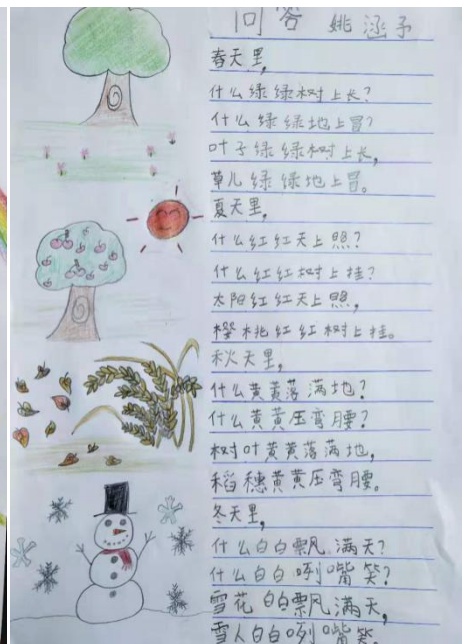 问答 姚涵予
春天里,
什么绿绿树上长?
什么绿绿地上冒?
叶子绿绿树上长,
草儿绿绿地上冒。
夏天里,
什么红红天上照?
什么红红树上挂?
太阳红红天上照,
樱桃红红树上挂。
秋天里,
什么黄黄落满地?
什么黄黄压弯腰?
树叶黄黄落满地,
稻穗黄黄压弯腰。
冬天里,
什么白白飘满天?
什么白白咧嘴笑?
雪花白白飘满天,
雪人白白咧嘴笑